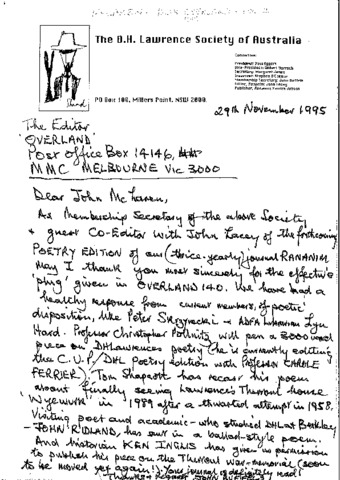 The D.H. Lawrence Society of Australia
PO Box 100, Millers Point, NSW 2000
29th November 1995
The Editor
OVERLAND
Post Office Box 14146,
MMC MELBOURNE Vic 3000
Dear John McLaren,
As Membership Secretary of the above Society
& guest Co-Editor with John Lacey of the forthcoming
POETRY EDITION of our (thrice-yearly) journal RANANIM
May I thank you most sincerely for the effective
'plug' given in OVERLAND 140. We have had a
healthy response from current members, of 'poetic'
disposition, like Peter Skrzynecki & ADFA Lyn
Hard. Professor Christopher Pollnitz will pen a 3000 word
piece on DHLawrence's poetry (he is currently editing
the C.U.P. DHL poetry edition with Professor CAROLE
FERRIER. Tom Shapcott has recast his poem
about finally seeing Lawrence's Thirroul house
'Wyewurk' in 1989 after a thwarted attempt in 1958.
Visiting poet and academic - who studied DHL at Berkley
- JOHN RIDLAND, has sent in a ballad-style poem.
And historian KEN INGLIS has given us permission
to publish his piece on the Thirroul war-memorial (soon
to be moved yet again!). Your journal is definitely read!
Thanks & regards JOHN